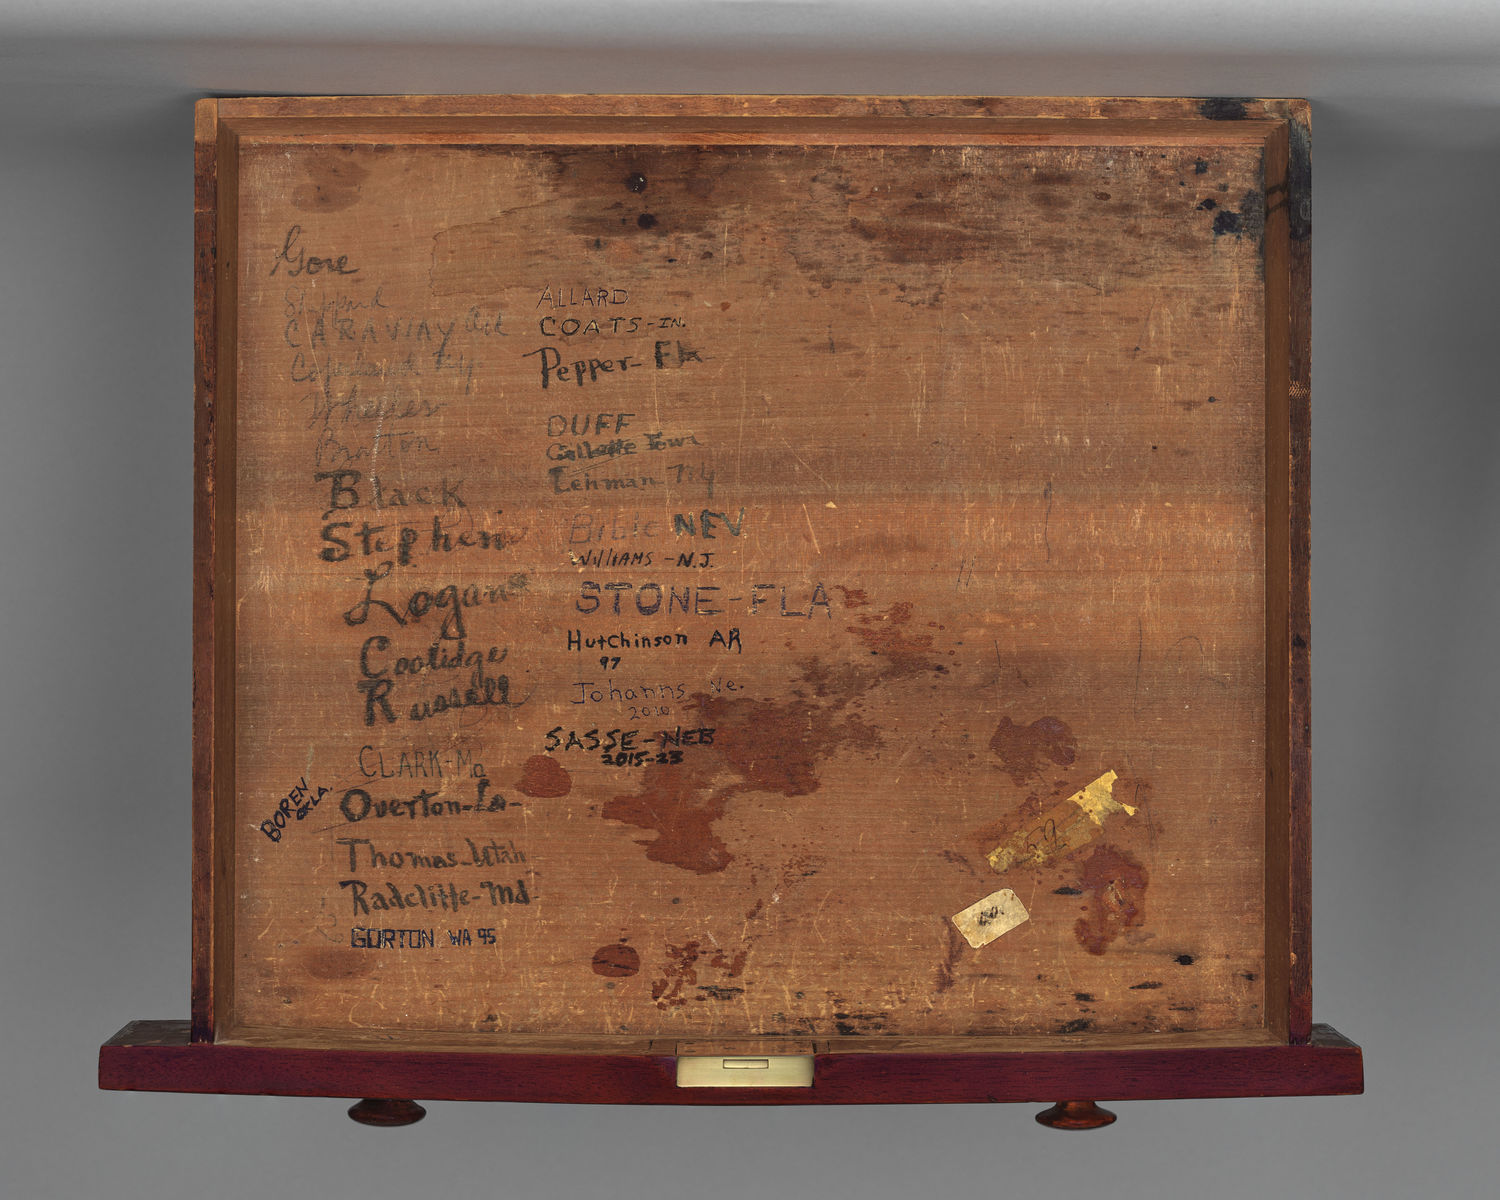 Gore
Sheppard
CARAWAY Ark
Copeland N.Y.
Wheeler
Bratton
Black
Stephens
Logan
Coolidge
Russell
CLARK-Mo
BOREN
OKLA.
Overton-La-
Thomas-Utah
Radcliffe-Md-
GORTON WA 95
ALLARD
COATS-IN.
Pepper-Fla-
DUFF
Gillette Iowa
Lehman N.Y
Bible NEV
Williams-N.J.
STONE-FLA
Hutchinson AR
97
Johanns Ne.
2010
SASSE-NEB
2015-23